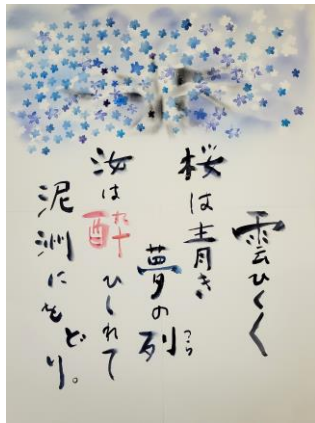 雲ひくく
桜は青き
夢の列
つら
汝は酔ひしれて
泥洲にをどり。